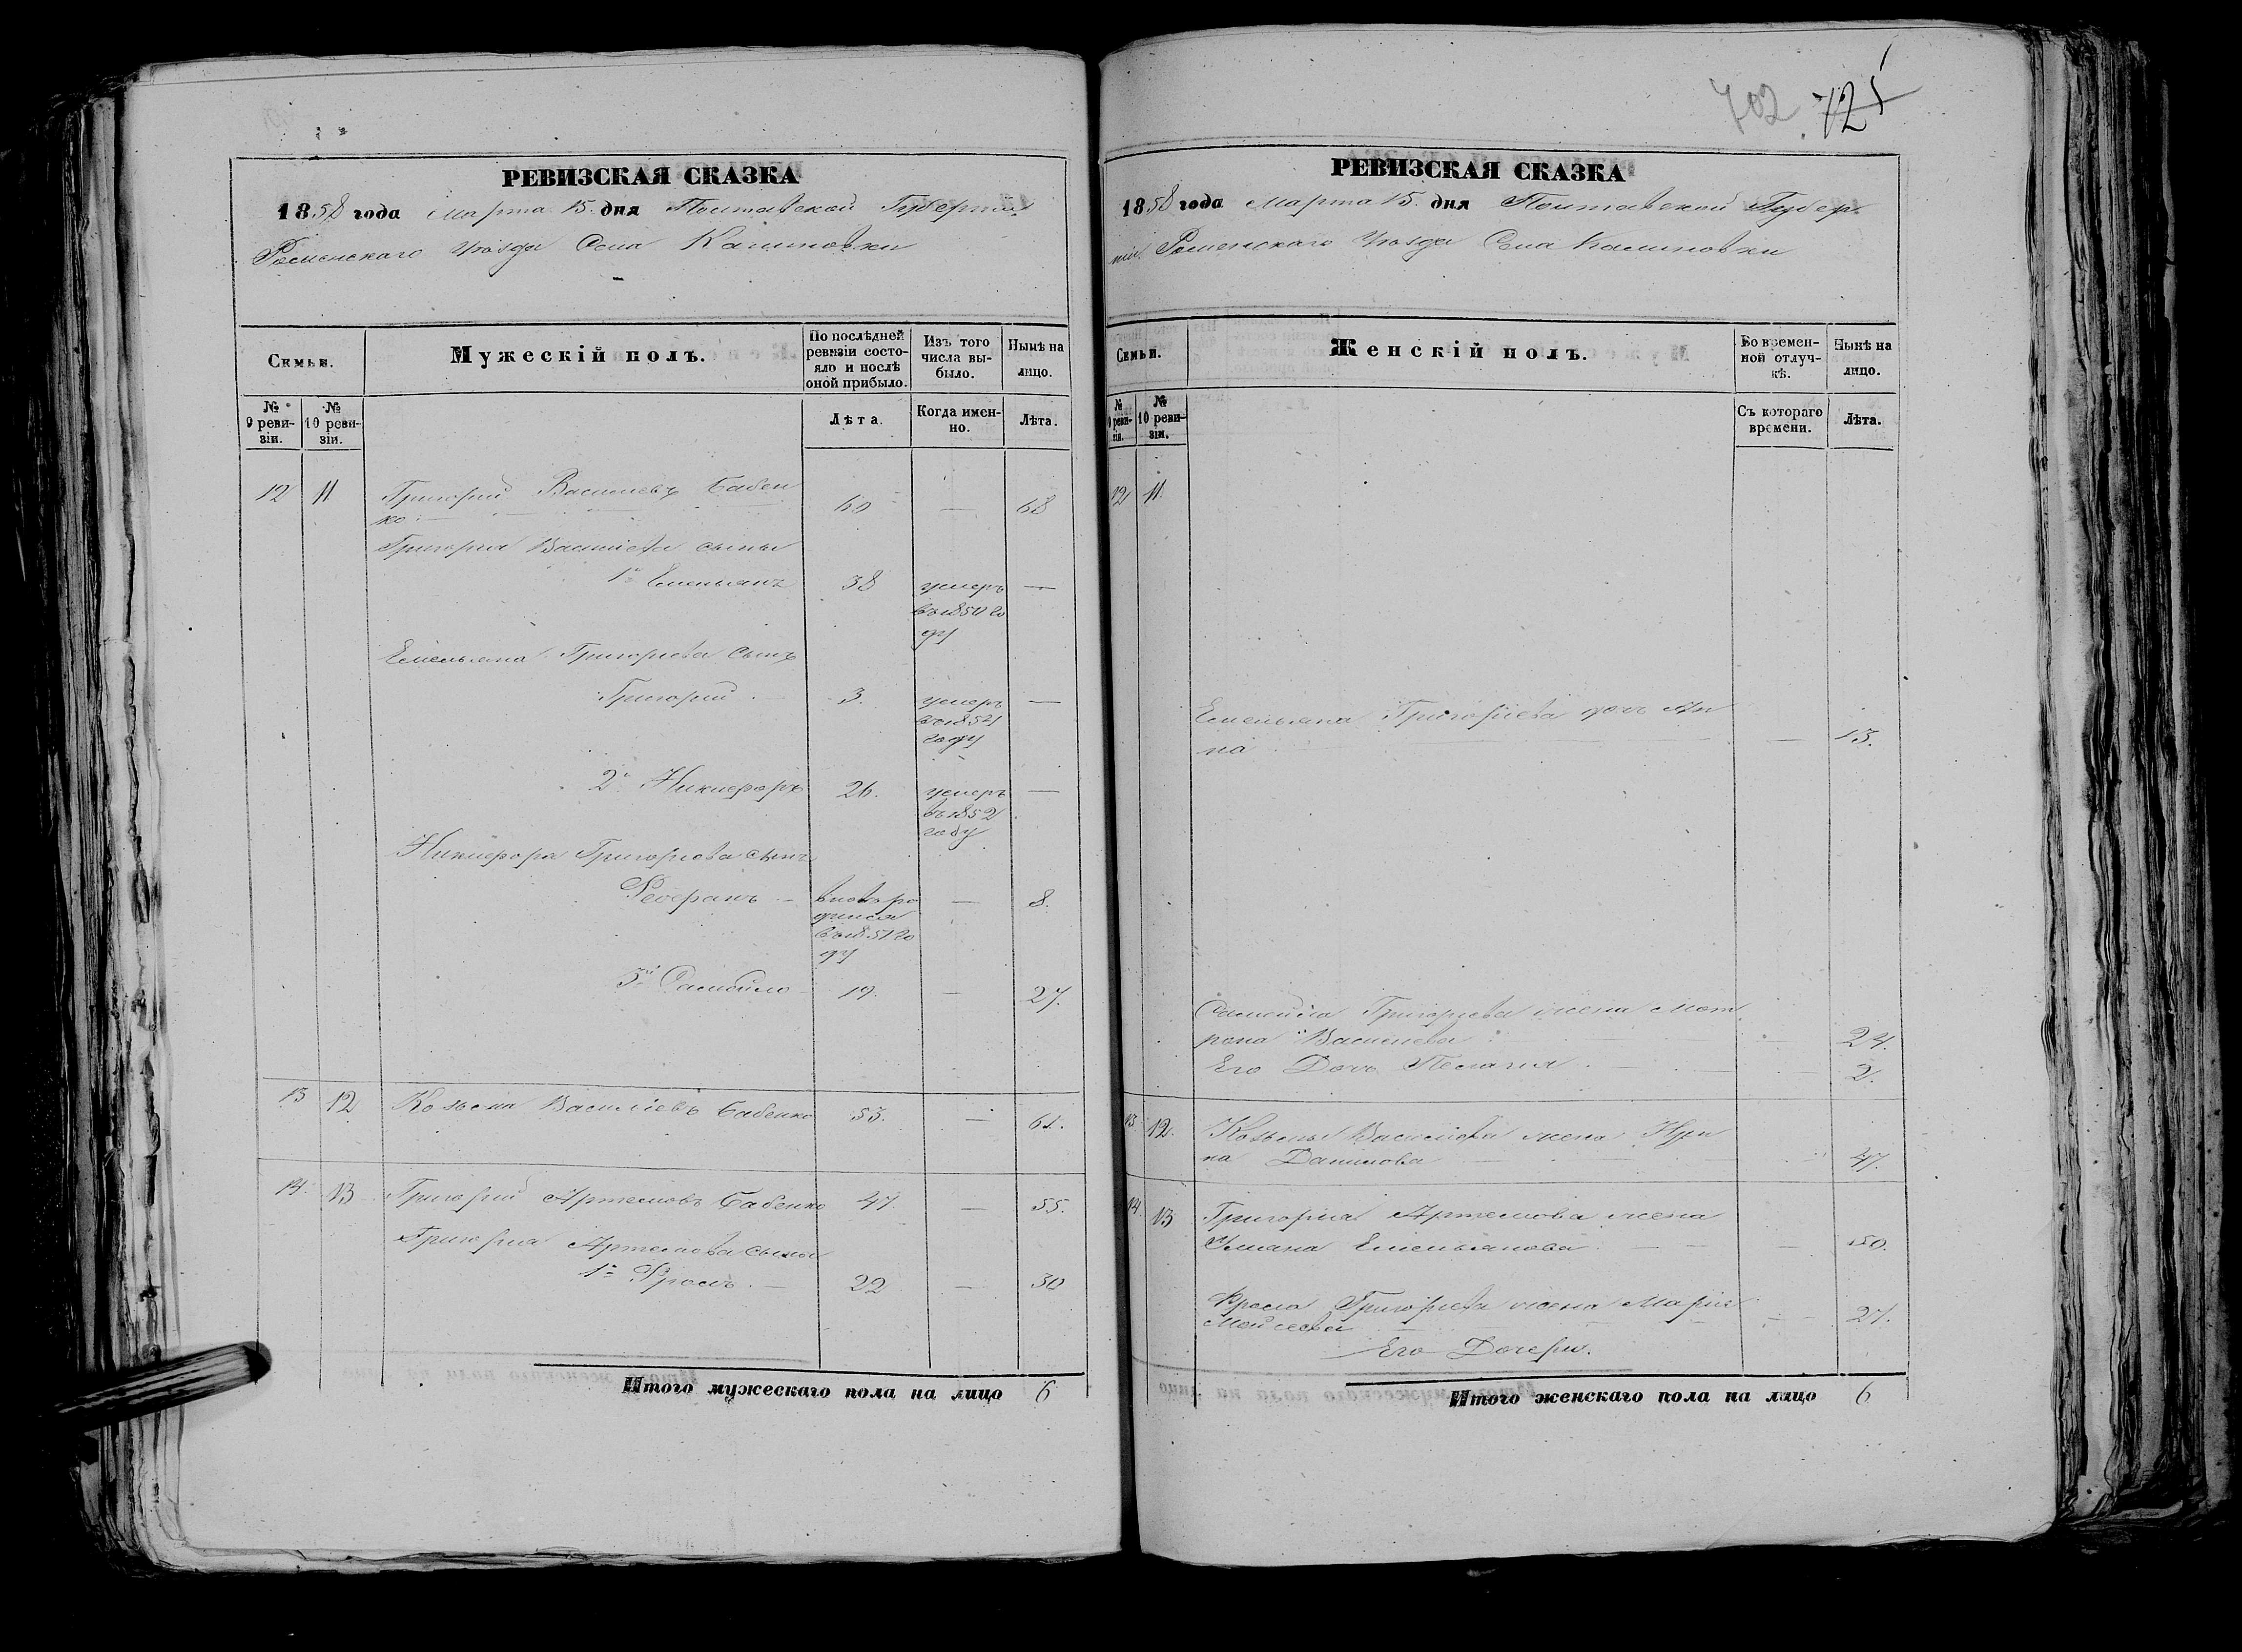 РЕВИЗСКАЯ СКАЗКА
1858 года Марта 15 дня Полтавской Губерніи
Роменскаго Уѣзда Села Калиновки
Семьи.
Мужескій полъ.
По послѣдней ревизіи состояло и послѣ оной прибыло.
Изъ того числа выбыло.
Нынѣ на лицо.
№ 9 ревизіи.
№ 10 ревизіи.
Лѣта.
Когда именно.
Лѣта.
12 11 Григорий Василіевъ Бабен
ко 60 — 68
Григорія Василіева сыны
1й Емельянъ 38 умеръ —
въ 1850 го
ду
Емельяна Григоріева сынъ
Григорий 3. умеръ —
въ 1852
году
2й Никифоръ 26. умеръ —
въ 1852
году
Никифора Григоріева сынъ
Феофанъ — вновь ро — 8.
дился
въ 1851 го
ду
3й Самойло 19. — 27.
13 12 Козьма Василіевъ Бабенко 53. — 61.
14. 13 Григорий Артемовъ Бабенко 47 — 55.
Григорія Артемова сыны
1й Фролъ. — 22 — 30
Итого мужескаго пола на лицо 6
702 725
РЕВИЗСКАЯ СКАЗКА
1858 года Марта 15. дня Полтавской Губер
ніи Роменскаго Уѣзда Села Калиновки
Семьи.
Женскій полъ.
Во временной отлучкѣ.
Нынѣ на лицо.
№ 9 ревизіи.
№ 10 ревизіи.
Съ котораго времени.
Лѣта.
12 11.
Емельяна Григоріева дочь Ан
на — 13.
Самойла Григоріева жена Мот
рона Василіева 24.
Его Дочь Пелагия — 2.
13 12. Козьмы Василіева жена
на Данилова 47.
14. 13 Григорія Артемова жена
Ульяна Емельянова — 50.
Фрола Григоріева жена Марія
Мойсеева — 27.
Его Дочери.
Итого женскаго пола на лицо 6